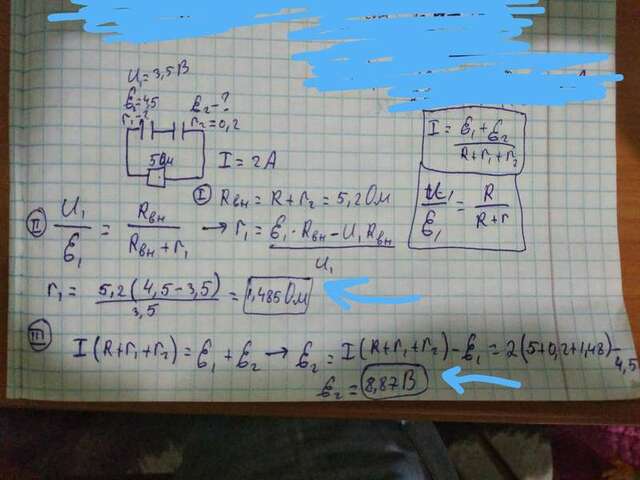 U₁=3,5В
Ɛ₁=4,5 Ɛ₂-?
r₁-? r₂=0,2
5Ом I=2А
I = Ɛ₁+Ɛ₂ / R+r₁+r₂
U₁/Ɛ₁ = R / R+r
I Rвн = R+r₂ = 5,2 Ом
II U₁/Ɛ₁ = Rвн / Rвн+r₁ → r₁ = Ɛ₁·Rвн-U₁Rвн / U₁
r₁ = 5,2(4,5-3,5) / 3,5 = 1,485 Ом
III I(R+r₁+r₂)=Ɛ₁+Ɛ₂ → Ɛ₂ = I(R+r₁+r₂)-Ɛ₁ = 2(5+0,2+1,48)-4,5
Ɛ₂ = 8,87В